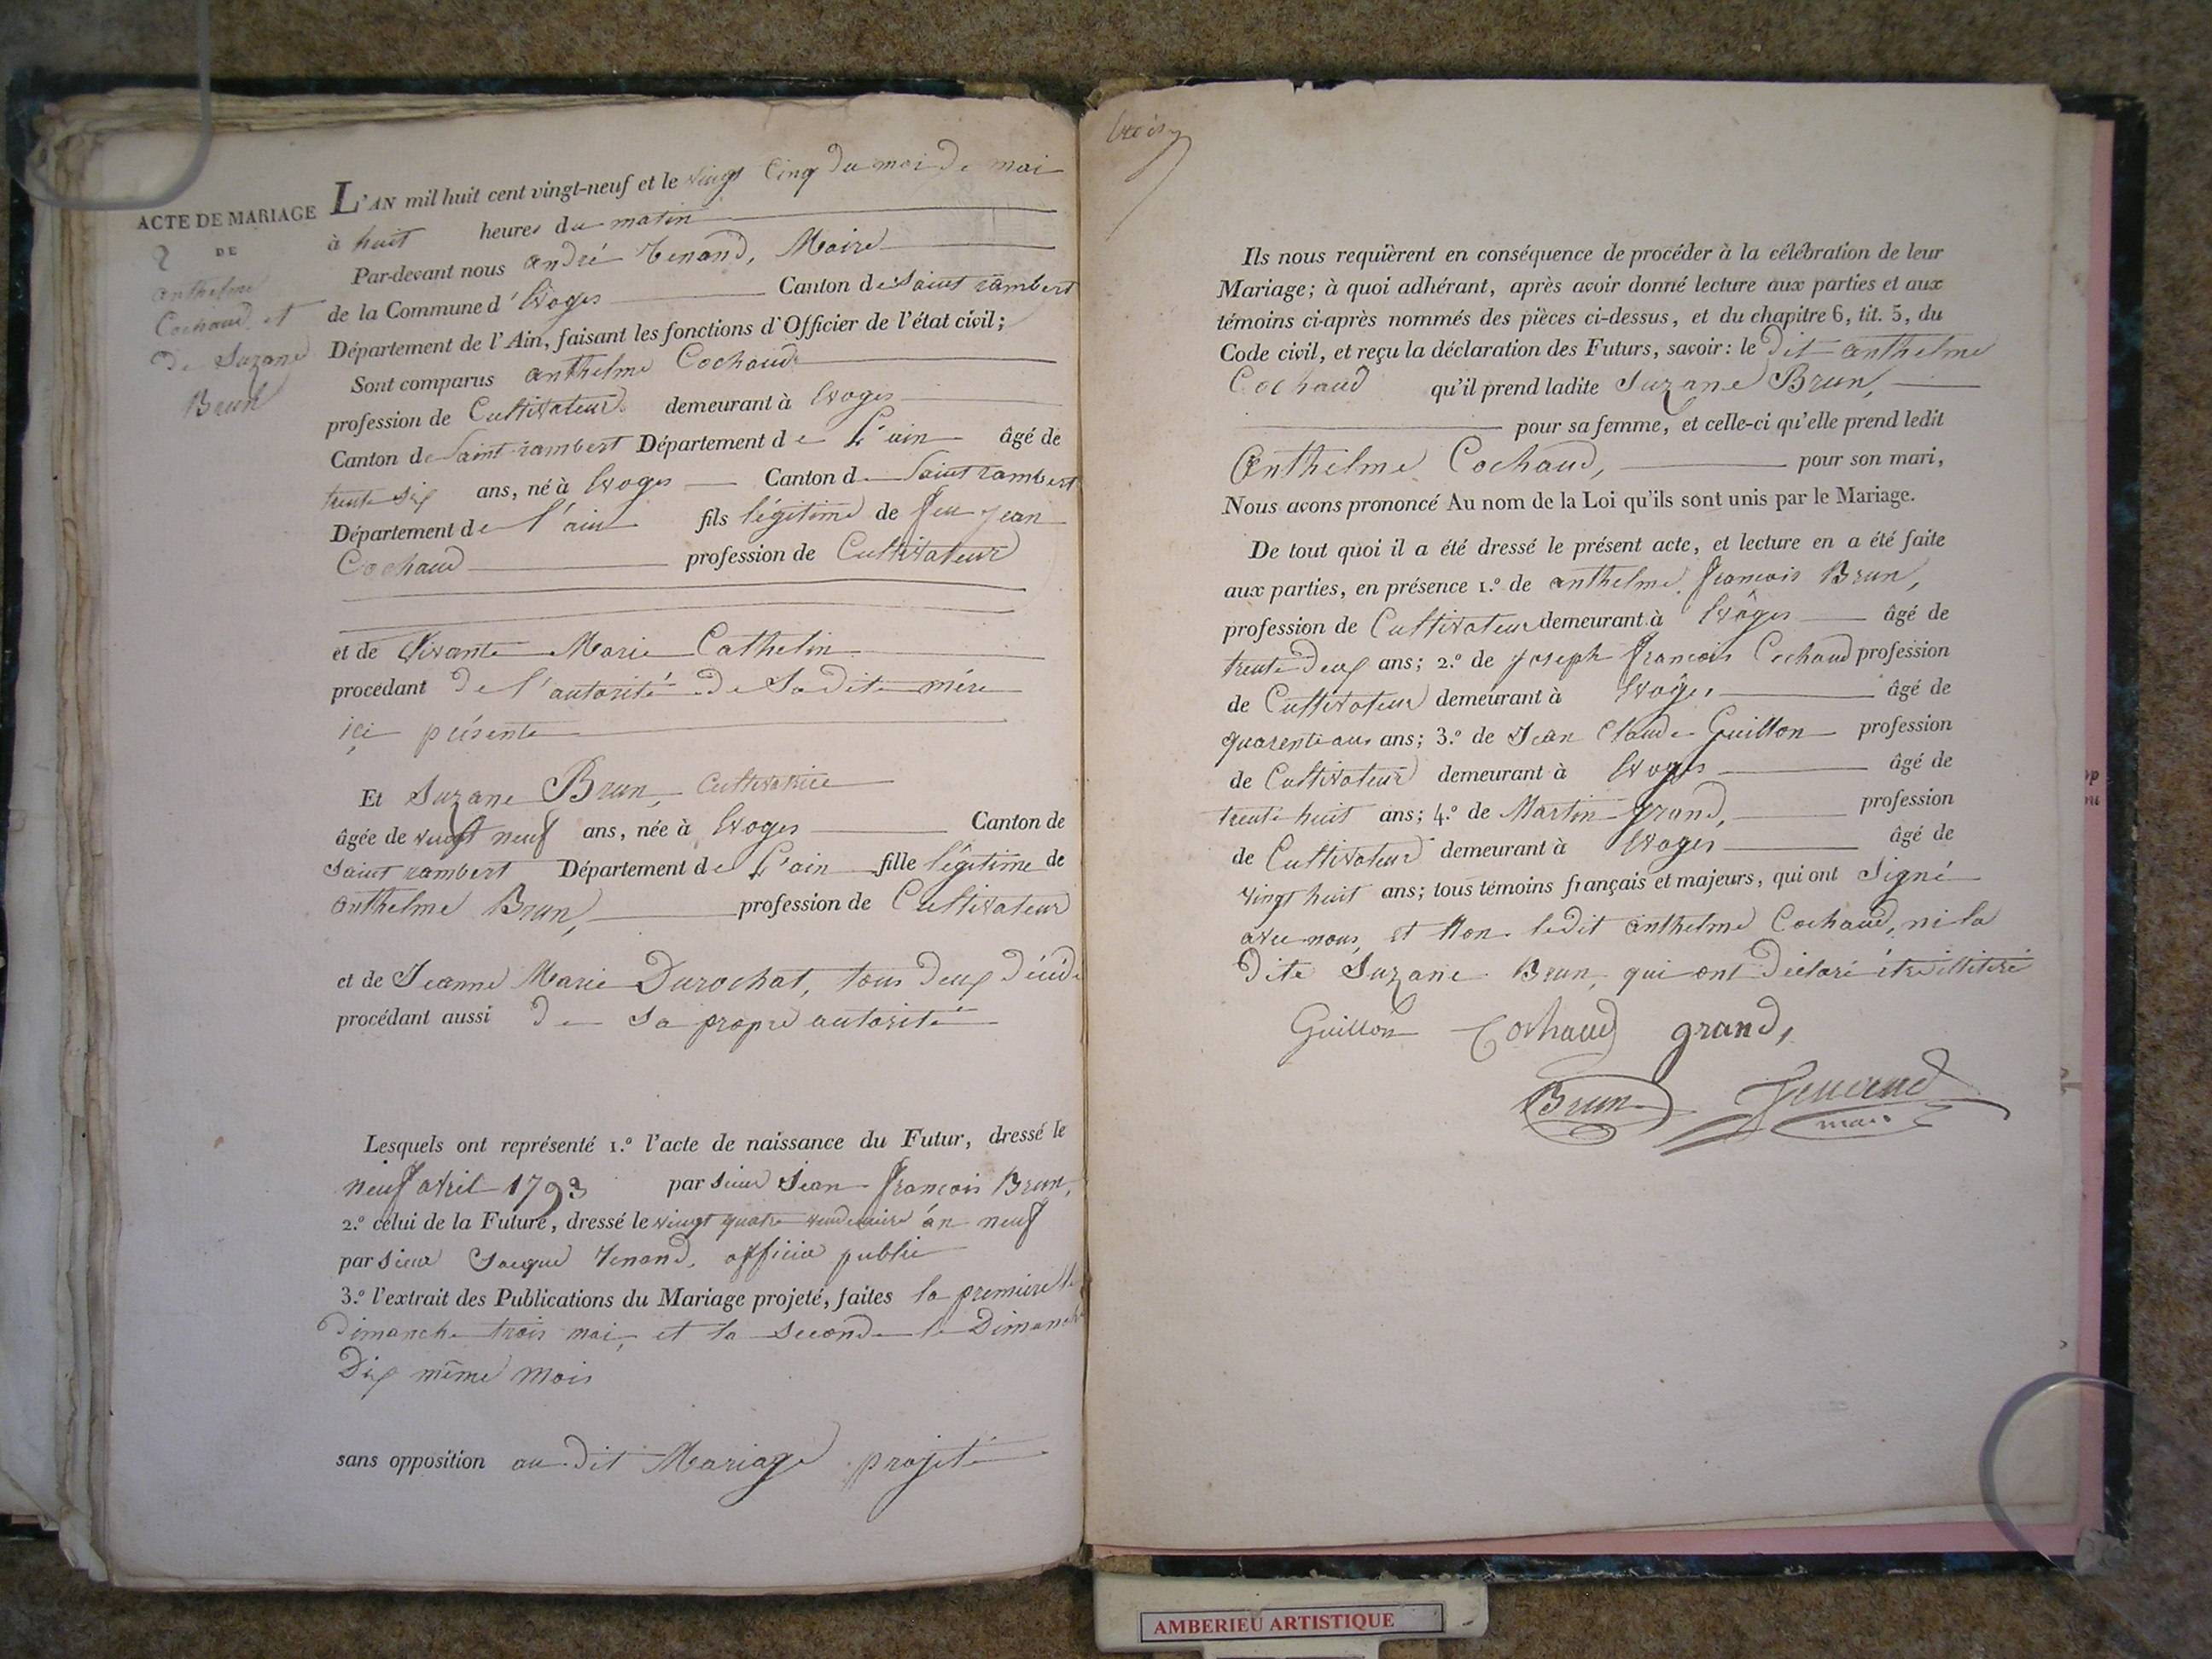 ACTE DE MARIAGE
2 DE
anthelme
Cochaud et
de Suzane
Brun
L'AN mil huit cent vingt-neuf et le vingt Cinq du moi de mai
à huit heures du matin
Par-devant nous andré tenand, Maire
de la Commune d'Evoges Canton de Saint rambert
Département de l'Ain, faisant les fonctions d'Officier de l'état civil;
Sont comparus anthelme Cochaud
profession de Cultivateur demeurant à Evoges
Canton de Saint rambert Département de L'ain âgé de
trente six ans, né à Evoges Canton de Saint rambert
Département de l'ain fils légitime de feu jean
Cochaud profession de Cultivateur
et de Vivante Marie Cathelin
procédant de l'autorité de Sadite mére
içi présente
Et Suzane Brun, Cultivatrice
âgée de vingt neuf ans, née à Evoges Canton de
Saint rambert Département de L'ain fille légitime de
anthelme Brun, profession de Cultivateur
et de Jeanne Marie Durochat, tous deux décédé
procédant aussi de Sa propre autorité
Lesquels ont représenté 1.º l'acte de naissance du Futur, dressé le
neuf avril 1793 par Sieur Jean françois Brun,
2.º celui de la Future, dressé le vingt quatre vendemiere an neuf
par Sieur Jacque tenand, officier public
3.º l'extrait des Publications du Mariage projeté, faites la premiere le
Dimanche trois mai, et la Seconde le Dimanche
Dix même mois
sans opposition au dit Mariage projeté
trois
Ils nous requièrent en conséquence de procéder à la célébration de leur
Mariage; à quoi adhérant, après avoir donné lecture aux parties et aux
témoins ci-après nommés des pièces ci-dessus, et du chapitre 6, tit. 5, du
Code civil, et reçu la déclaration des Futurs, savoir: le dit anthelme
Cochaud qu'il prend ladite Suzane Brun,
pour sa femme, et celle-ci qu'elle prend ledit
Anthelme Cochaud, pour son mari,
Nous avons prononcé Au nom de la Loi qu'ils sont unis par le Mariage.
De tout quoi il a été dressé le présent acte, et lecture en a été faite
aux parties, en présence 1.º de anthelme françois Brun,
profession de Cultivateur demeurant à Evôges âgé de
trente deux ans; 2.º de joseph françois Cochaud profession
de Cultivateur demeurant à Evôges âgé de
quarente ans; 3.º de Jean Claude Guillon profession
de Cultivateur demeurant à Evoges âgé de
trente huit ans; 4.º de Martin grand, profession
de Cultivateur demeurant à Evoges âgé de
vingt huit ans; tous témoins français et majeurs, qui ont Signé
avec nous, et non ledit anthelme Cochaud, ni la
dite Suzane Brun, qui ont déclaré être illitéré
Guillon Cochaud grand,
Brun Tenand
maire
AMBERIEU ARTISTIQUE